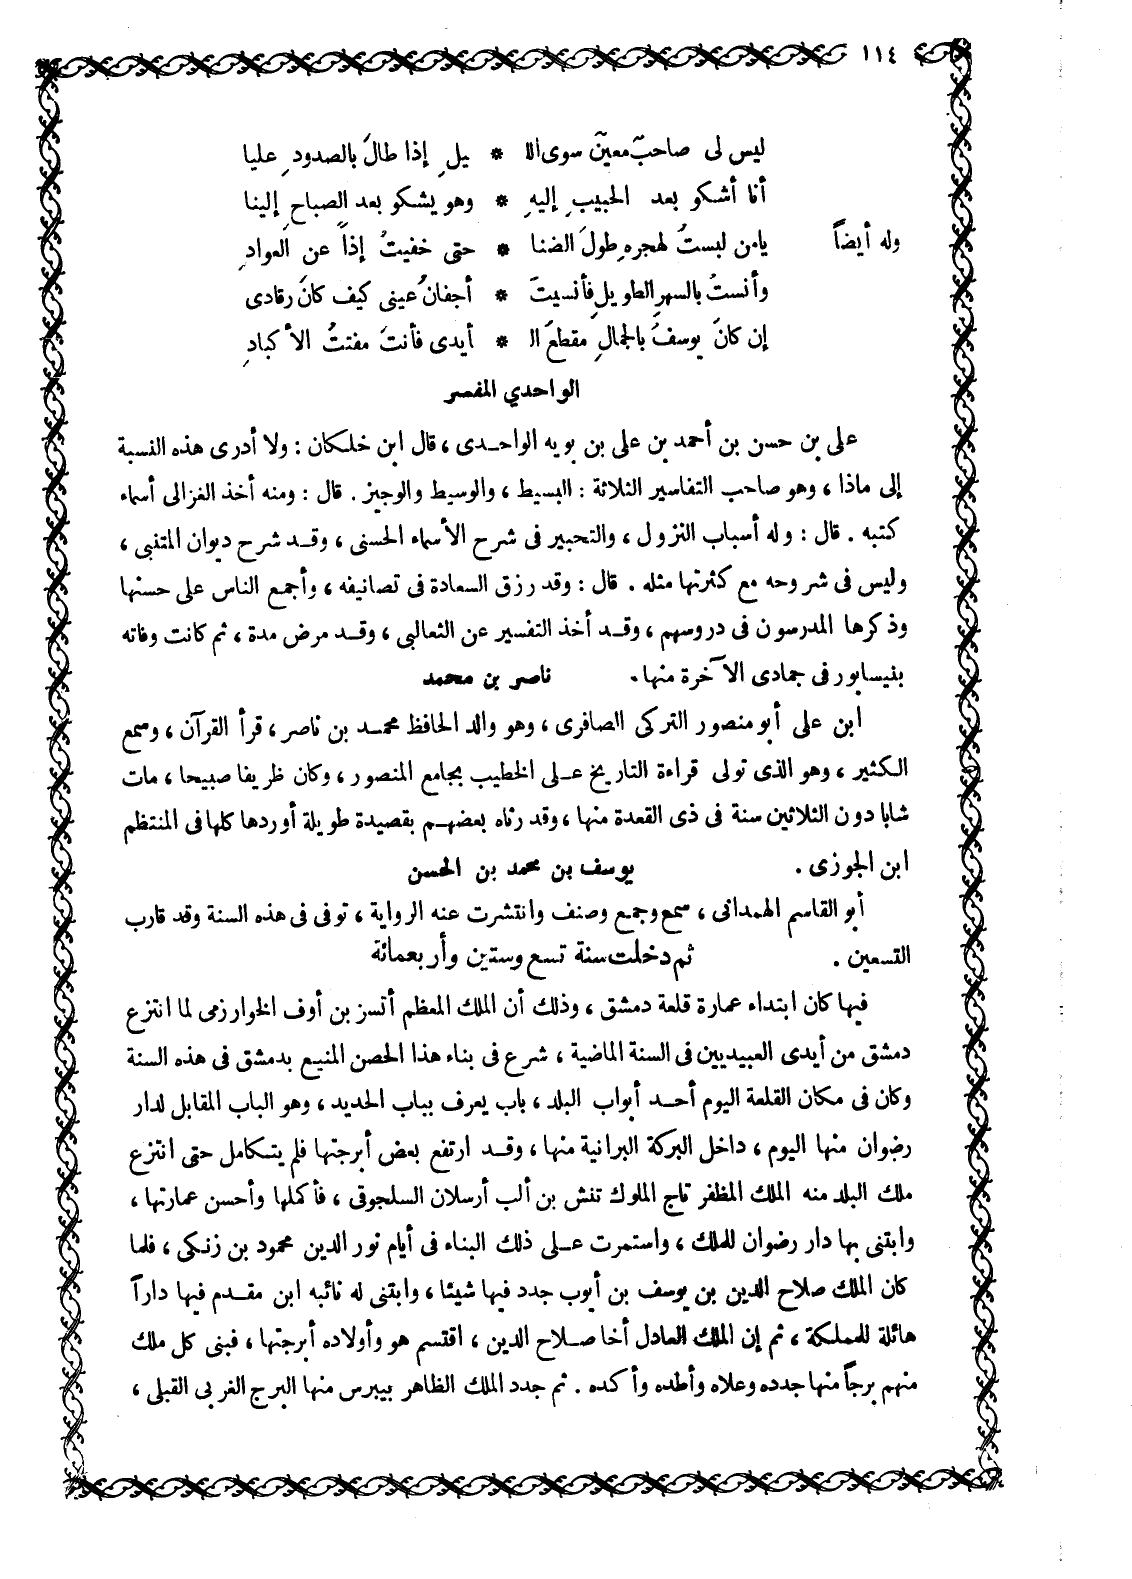 ١١٤
ليس لى صاحبٌ معينٌ سوى الا * يلِ إذا طالَ بالصدودِ عليا
أنا أشكو بعد الحبيبِ إليهِ * وهو يشكو بعد الصباحِ إلينا
وله أيضاً يامن لبستُ لهجرهِ طولَ الضنا * حتى خفيتُ إذاً عن العوادِ
وأنستُ بالسهرِ الطويلِ فأنسيتْ * أجفانُ عينى كيف كانَ رقادى
إن كانَ يوسفُ بالجمالِ مقطعَ ال * أيدى فأنتَ مفتتُ الأكبادِ
الواحدي المفسر
على بن حسن بن أحمد بن على بن بويه الواحدى، قال ابن خلكان: ولا أدرى هذه النسبة
إلى ماذا، وهو صاحب التفاسير الثلاثة: البسيط، والوسيط والوجيز. قال: ومنه أخذ الغزالى أسماء
كتبه. قال: وله أسباب النزول، والتحبير فى شرح الأسماء الحسنى، وقد شرح ديوان المتنبى،
وليس فى شروحه مع كثرتها مثله. قال: وقد رزق السعادة فى تصانيفه، وأجمع الناس على حسنها
وذكرها المدرسون فى دروسهم، وقد أخذ التفسير عن الثعالبى، وقد مرض مدة، ثم كانت وفاته
بنيسابور فى جمادى الآخرة منها. ناصر بن محمد
ابن على أبو منصور التركى الصافرى، وهو والد الحافظ محمد بن ناصر، قرأ القرآن، وسمع
الكثير، وهو الذى تولى قراءة التاريخ على الخطيب بجامع المنصور، وكان ظريفا صبيحا، مات
شابا دون الثلاثين سنة فى ذى القعدة منها، وقد رثاه بعضهم بقصيدة طويلة أوردها كلها فى المنتظم
ابن الجوزى. يوسف بن محمد بن الحسن
أبو القاسم الهمدانى، سمع وجمع وصنف وانتشرت عنه الرواية، توفى فى هذه السنة وقد قارب
التسعين. ثم دخلت سنة تسع وستين وأربعمائة
فيها كان ابتداء عمارة قلعة دمشق، وذلك أن الملك المعظم أتسز بن أوف الخوارزمى لما انتزع
دمشق من أيدى العبيديين فى السنة الماضية، شرع فى بناء هذا الحصن المنيع بدمشق فى هذه السنة
وكان فى مكان القلعة اليوم أحد أبواب البلد، باب يعرف بباب الحديد، وهو الباب المقابل لدار
رضوان منها اليوم، داخل البركة البرانية منها، وقد ارتفع بعض أبرجتها فلم يتكامل حتى انتزع
ملك البلد منه الملك المظفر تاج الملوك تتش بن ألب أرسلان السلجوقى، فأكملها وأحسن عمارتها،
وابتنى بها دار رضوان للملك، واستمرت على ذلك البناء فى أيام نور الدين محمود بن زنكى، فلما
كان الملك صلاح الدين بن يوسف بن أيوب جدد فيها شيئا، وابتنى له نائبه ابن مقدم فيها داراً
هائلة للمملكة، ثم إن الملك العادل أخا صلاح الدين، اقتسم هو وأولاده أبرجتها، فبنى كل ملك
منهم برجاً منها جدده وعلاه وأطده وأكده. ثم جدد الملك الظاهر بيبرس منها البرج الغربى القبلى،